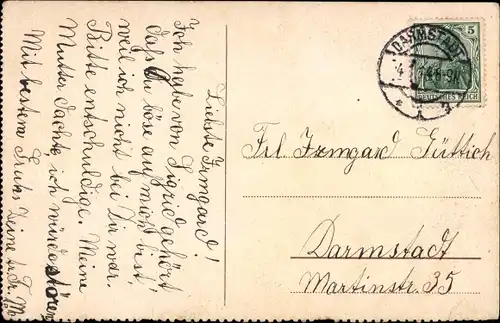 Liebste Irmgard!
Ich habe von Sigrid gehört
daß Du böse auf mich bist,
weil ich nicht bei Dir war.
Bitte entschuldige. Meine
Mutter dachte, ich würde stören
Mit bestem Gruß Deine
DARMSTADT
5
DEUTSCHES REICH
Frl Irmgard Füttich
Darmstadt
Martinstr. 35